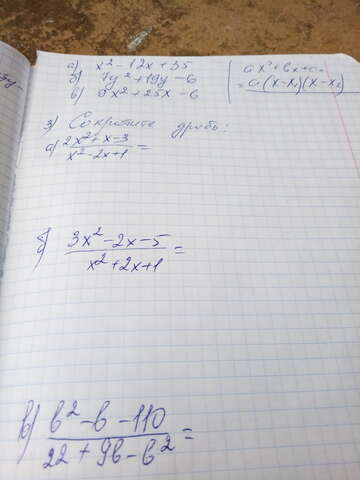 а) x² - 12x + 35
б) 7y² + 19y - 6
в) 9x² + 25x - 6
ax² + bx + c =
= a(x-x₁)(x-x₂)
3) Сократите дробь:
а) 2x²+x-3
x²-2x+1 =
б) 3x²-2x-5
x²+2x+1 =
в) b² - b - 110
22 + 9b - b² =